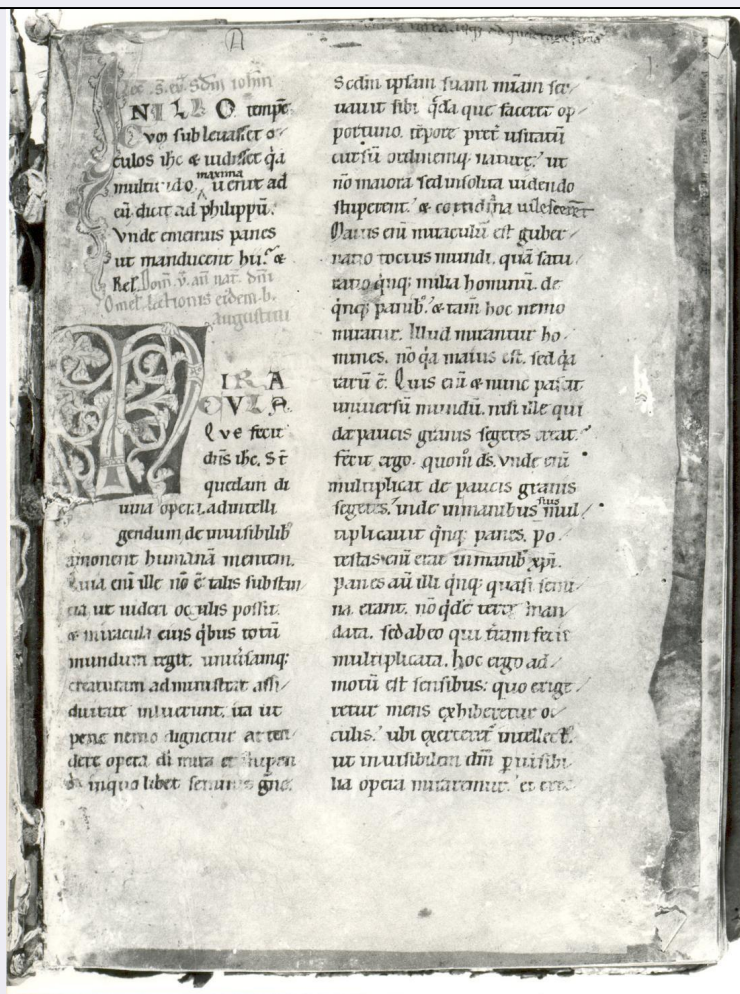 A
lec. s. eu. Sc̄dm iohm̄
IN ILLO tempr̄e
Cvm subleuasset o⸗
culos ihc & uidisset q̇a
multitudo maxima uenit ad
eū dicit ad philippū.
Vnde ememus panes
ut manducent hii. &
Rel. Dom̄. v. an̄ nat. dn̄i
Omel. lectionis eiusdem. b.
augustini
MIRA
CVLA
Que fecit
dn̄s ihc. St̄
quedam di
uina opera. ad intelli
gendum de inuisibilib᷒
amonent humanā mentem.
Quia eni ille nō ē talis substan
tia ut uideri oculis possit.
& miracula eius q̇bus totū
mundum regit. uniūsamq;
creaturam administrat assi⸗
duitate inluerunt. ita ut
pene nemo dignetur atten⸗
dere opera dī mira et stupen
da in quolibet seminis g̅no.
Scdm̄ ipsam suam miam̄ ser⸗
uauit sibi q̇da que faceret op⸗
portuno. tēpore pret̄ usitatū
cursū ordinemq; nature; ut
nō maiora sed insolita uidendo
stuperent. & cottidiana uilescerēt
Maius eni miraculū est guber⸗
natio tocius mundi. quā satu⸗
ratio q̇nq; milia hominū. de
q̇nq; panib᷒. & tam̄ hoc nemo
miratur. Illud mirantur ho⸗
mines. nō q̇a maius est. sed q̇a
rarū ē. Quis eni & nunc pascit
uniuersū mundū. nisi ille qui
de paucis granis segetes creat.
fecit ergo. quom̄ ds̄. Vnde eni
multiplicat de paucis granis
segetes. inde in manibus suis mul⸗
tiplicauit q̇nq; panes. Po⸗
testas eni erat in manib᷒ xpī.
panes aū illi q̇nq; quasi semi⸗
na erant. nō q̇de terre man⸗
data. sed ab eo qui terram fecit
multiplicata. hoc ergo ad⸗
motū est sensibus; quo erige⸗
retur mens exhiberetur o⸗
culis; ubi exerceret̄ intellect᷒.
ut inuisibilem dm̄ p̱ uisibi⸗
lia opera miraremur. et erec